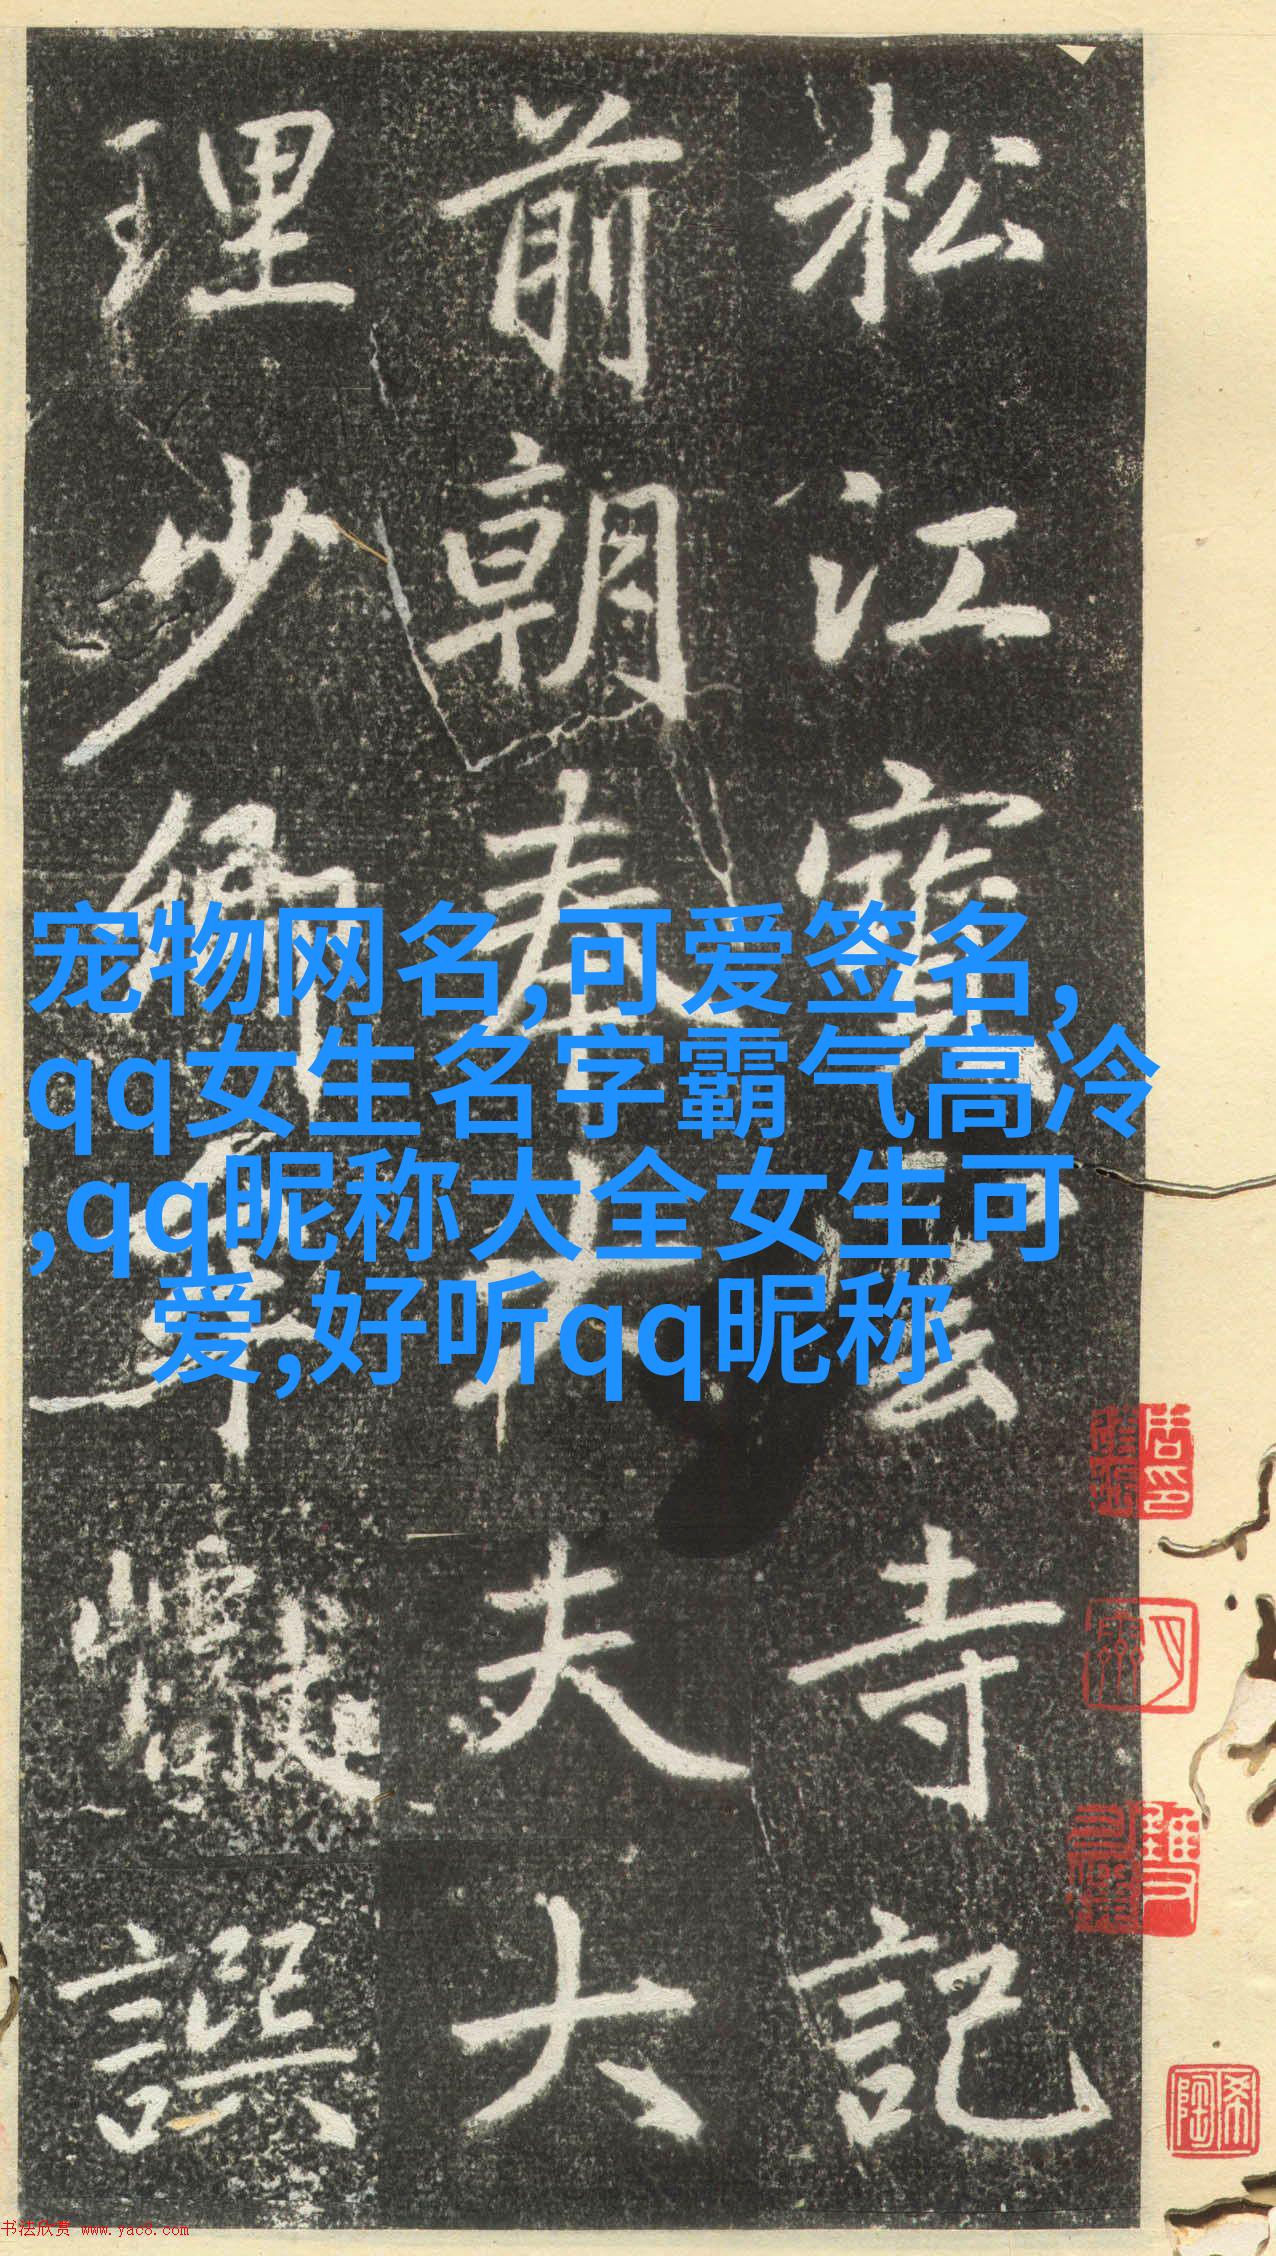 松江寶雲寺記
前朝奉大夫大
理少卿牟譔
宠物网名,可爱签名,
qq女生名字霸气高冷
,qq昵称大全女生可
爱,好听qq昵称
希陶
书法欣赏 www.yac8.com